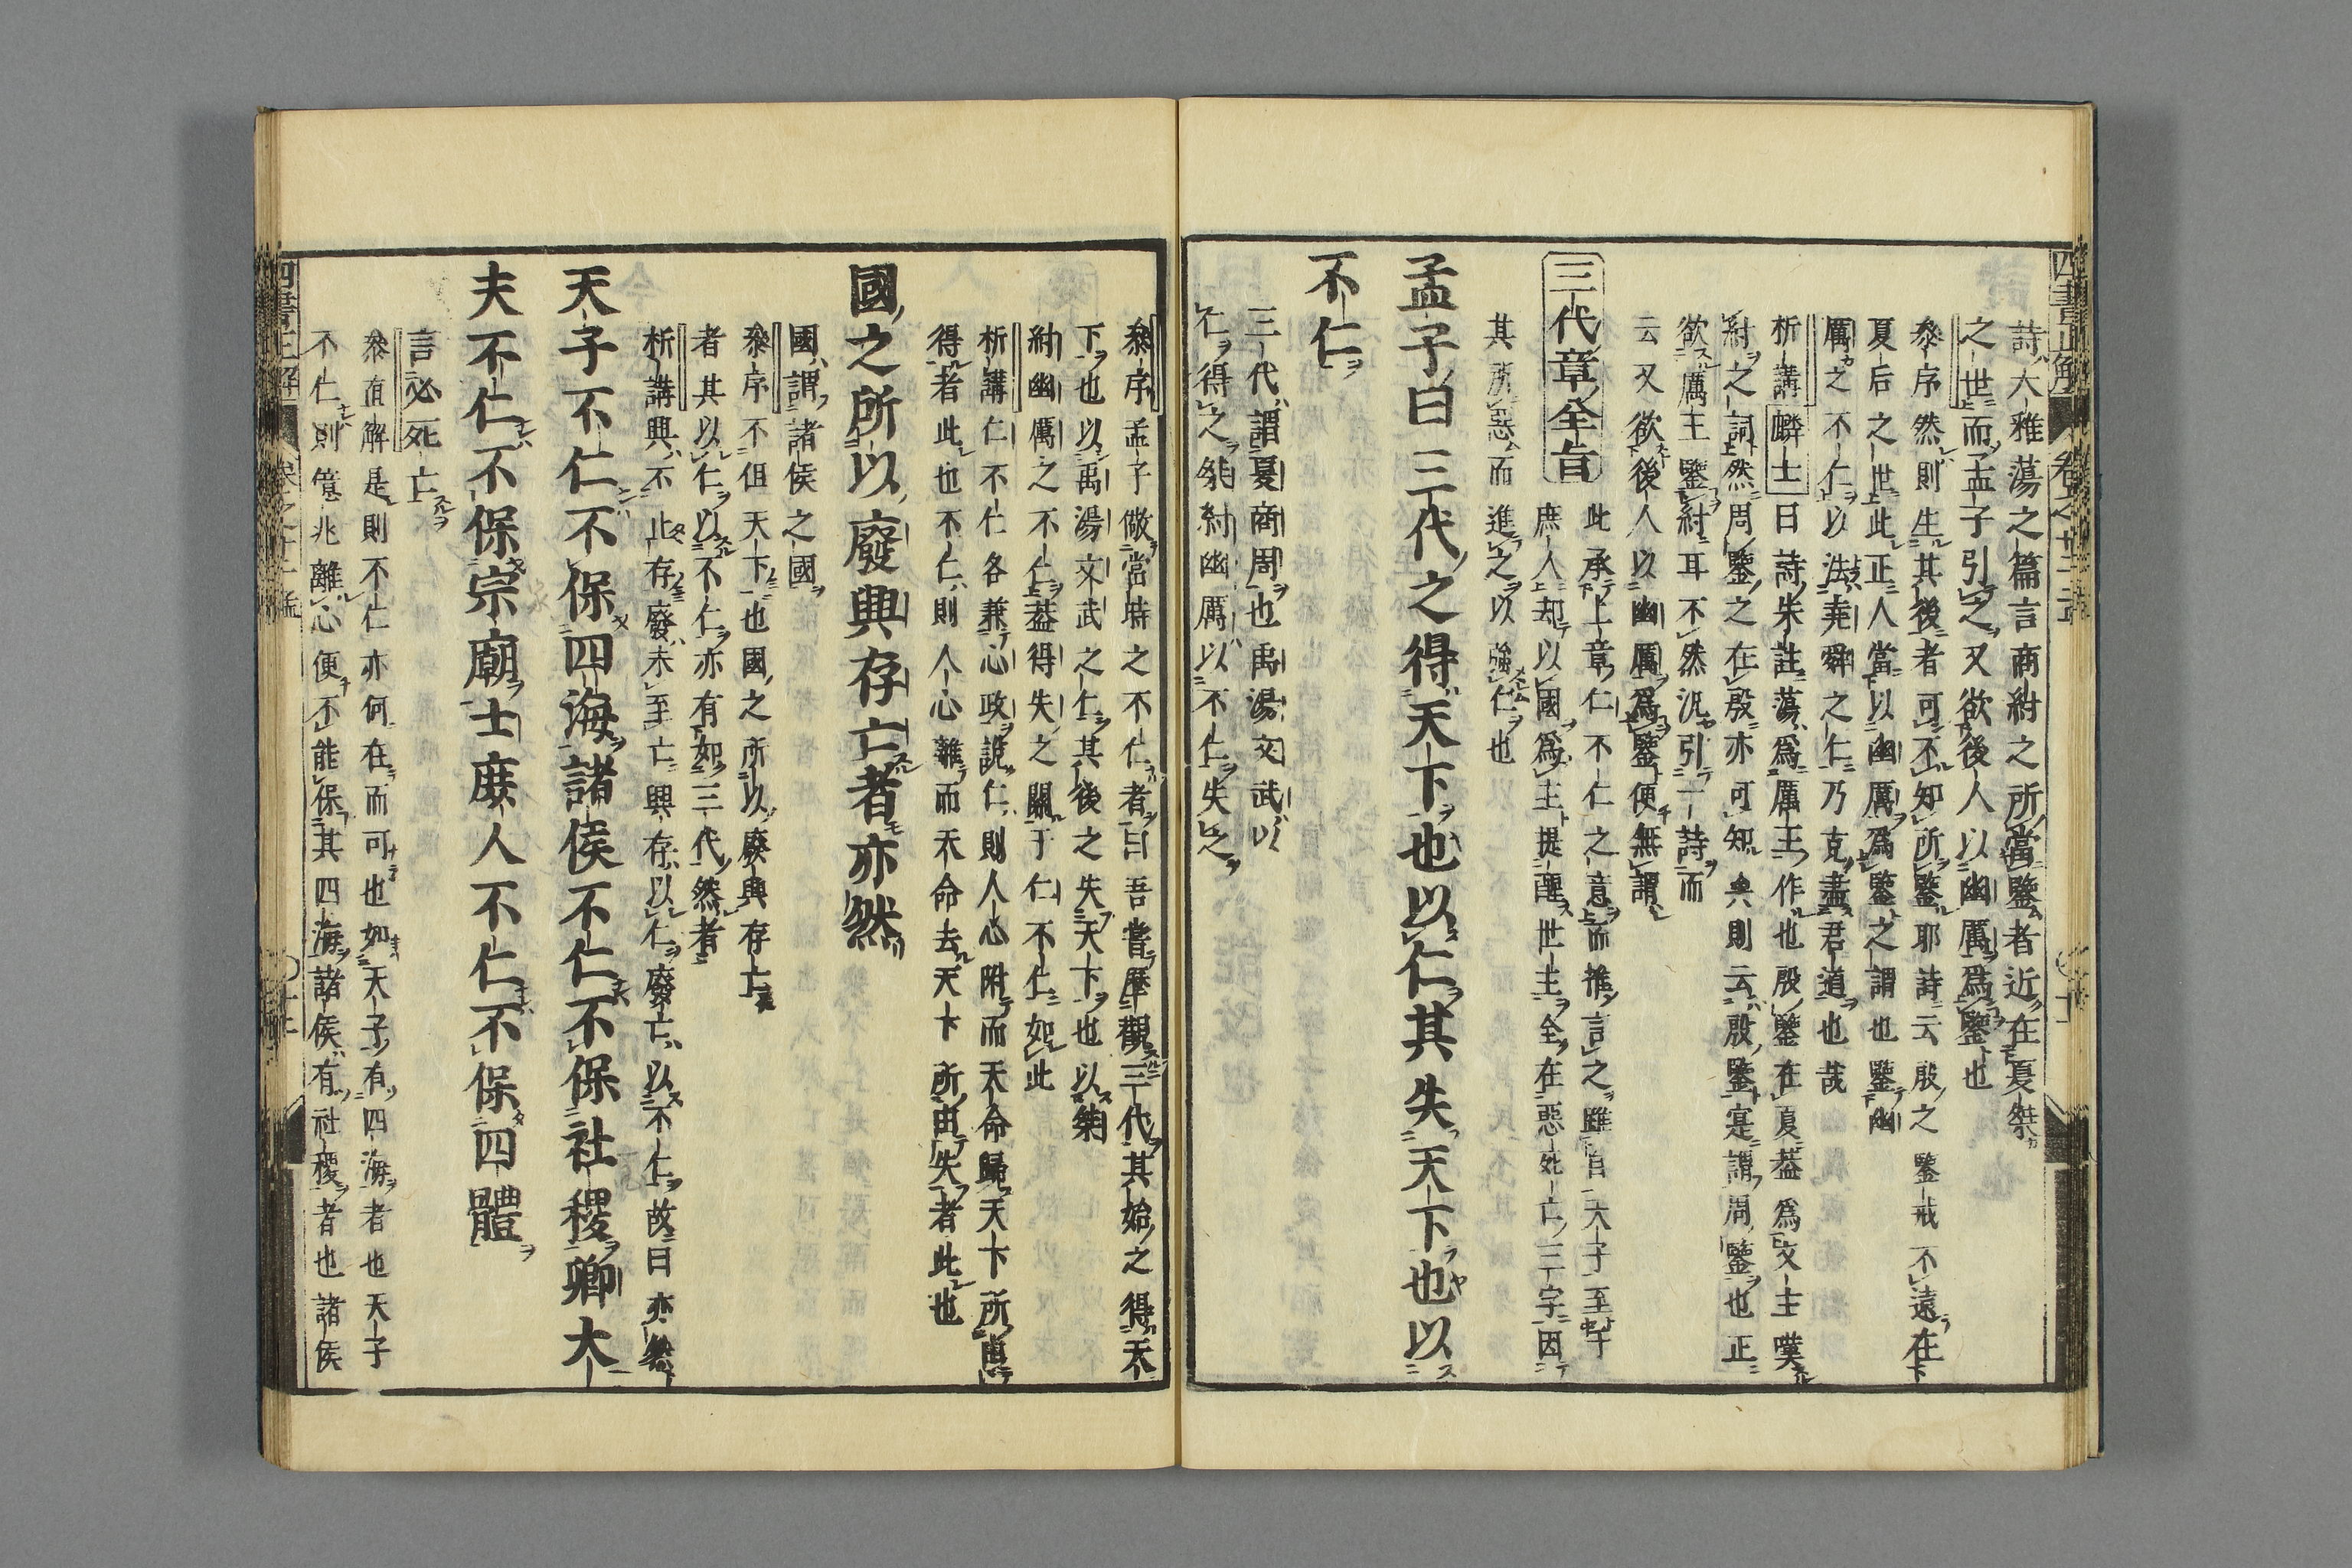 詩大雅蕩之篇言商紂之所當鑒者近在夏桀
之世而孟子引之又欲後人以幽厲爲鑒也
叅序然則生其後者可不知所鑒耶詩云殷之鑒戒不遠在
夏后之世此正人當以幽厲爲鑒之謂也鑒幽
厲之不仁以法堯舜之仁乃克盡君道也哉
析講麟士曰詩朱註蕩爲厲王作也殷鑒在夏葢爲文王嘆
紂之詞然周鑒之在殷亦可知與則云殷鑒寔謂周鑒也正
欲厲王鑒紂耳不然况引一詩而
云又欲後人以幽厲爲鑒便無謂
三代章全旨
此承上章仁不仁之意而推言之雖自天子至于
庶人却以國爲主提醒世主全在惡死亡三字因
其所惡而進之以強仁也
孟子曰三代之得天下也以仁其失天下也以
不仁
三代謂夏商周也禹湯文武以
仁得之桀紂幽厲以不仁失之
叅序孟子儆當時之不仁者曰吾嘗歷觀三代其始之得天
下也以禹湯文武之仁其後之失天下也以桀
紂幽厲之不仁葢得失之關于仁不仁如此
析講仁不仁各兼心政說仁則人心附而天命歸天下所由
得者此也不仁則人心離而天命去天下所由失者此也
國之所以廢興存亡者亦然
國謂諸侯之國
叅序不但天下也國之所以廢興存亡
者其以仁以不仁亦有如三代然者
析講興不止存廢未至亡興存以仁廢亡以不仁故曰亦然
天子不仁不保四海諸侯不仁不保社稷卿大
夫不仁不保宗廟士庶人不仁不保四體
言必死亡
叅直解是則不仁亦何在而可也如天子有四海者也天子
不仁則億兆離心便不能保其四海諸侯有社稷者也諸侯